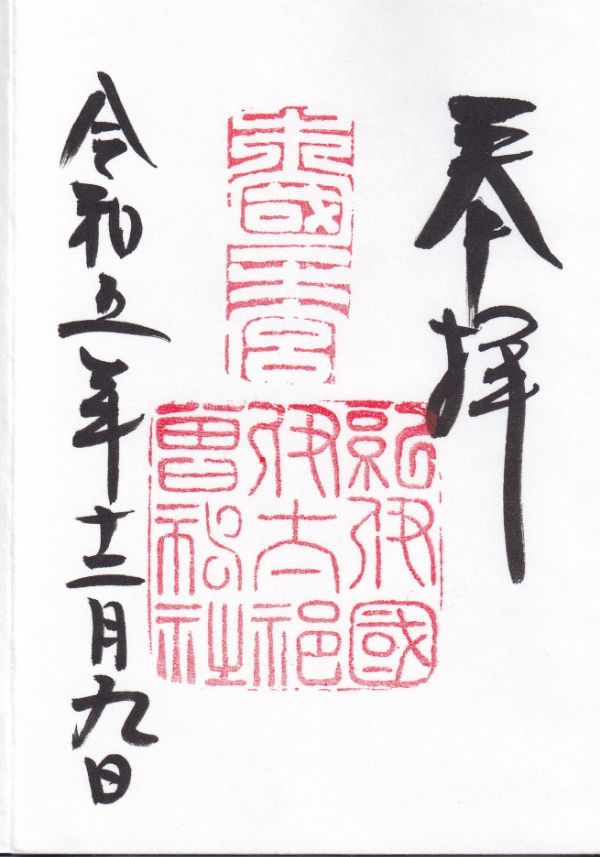 奉拝
紀伊國
伊太祁
曽神社
令和五年十二月九日